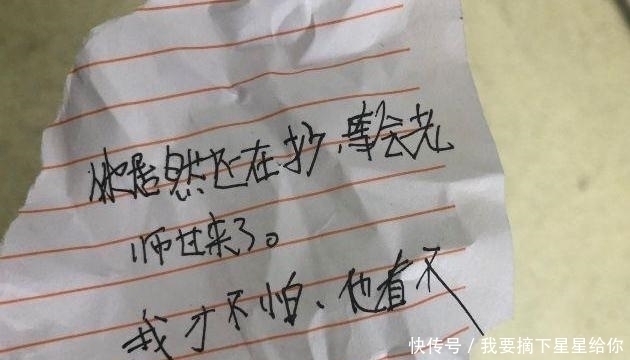 她居然还在抄,等会老
师进来了。
我才不怕、他看不
快传号 / 我要摘下星星给你